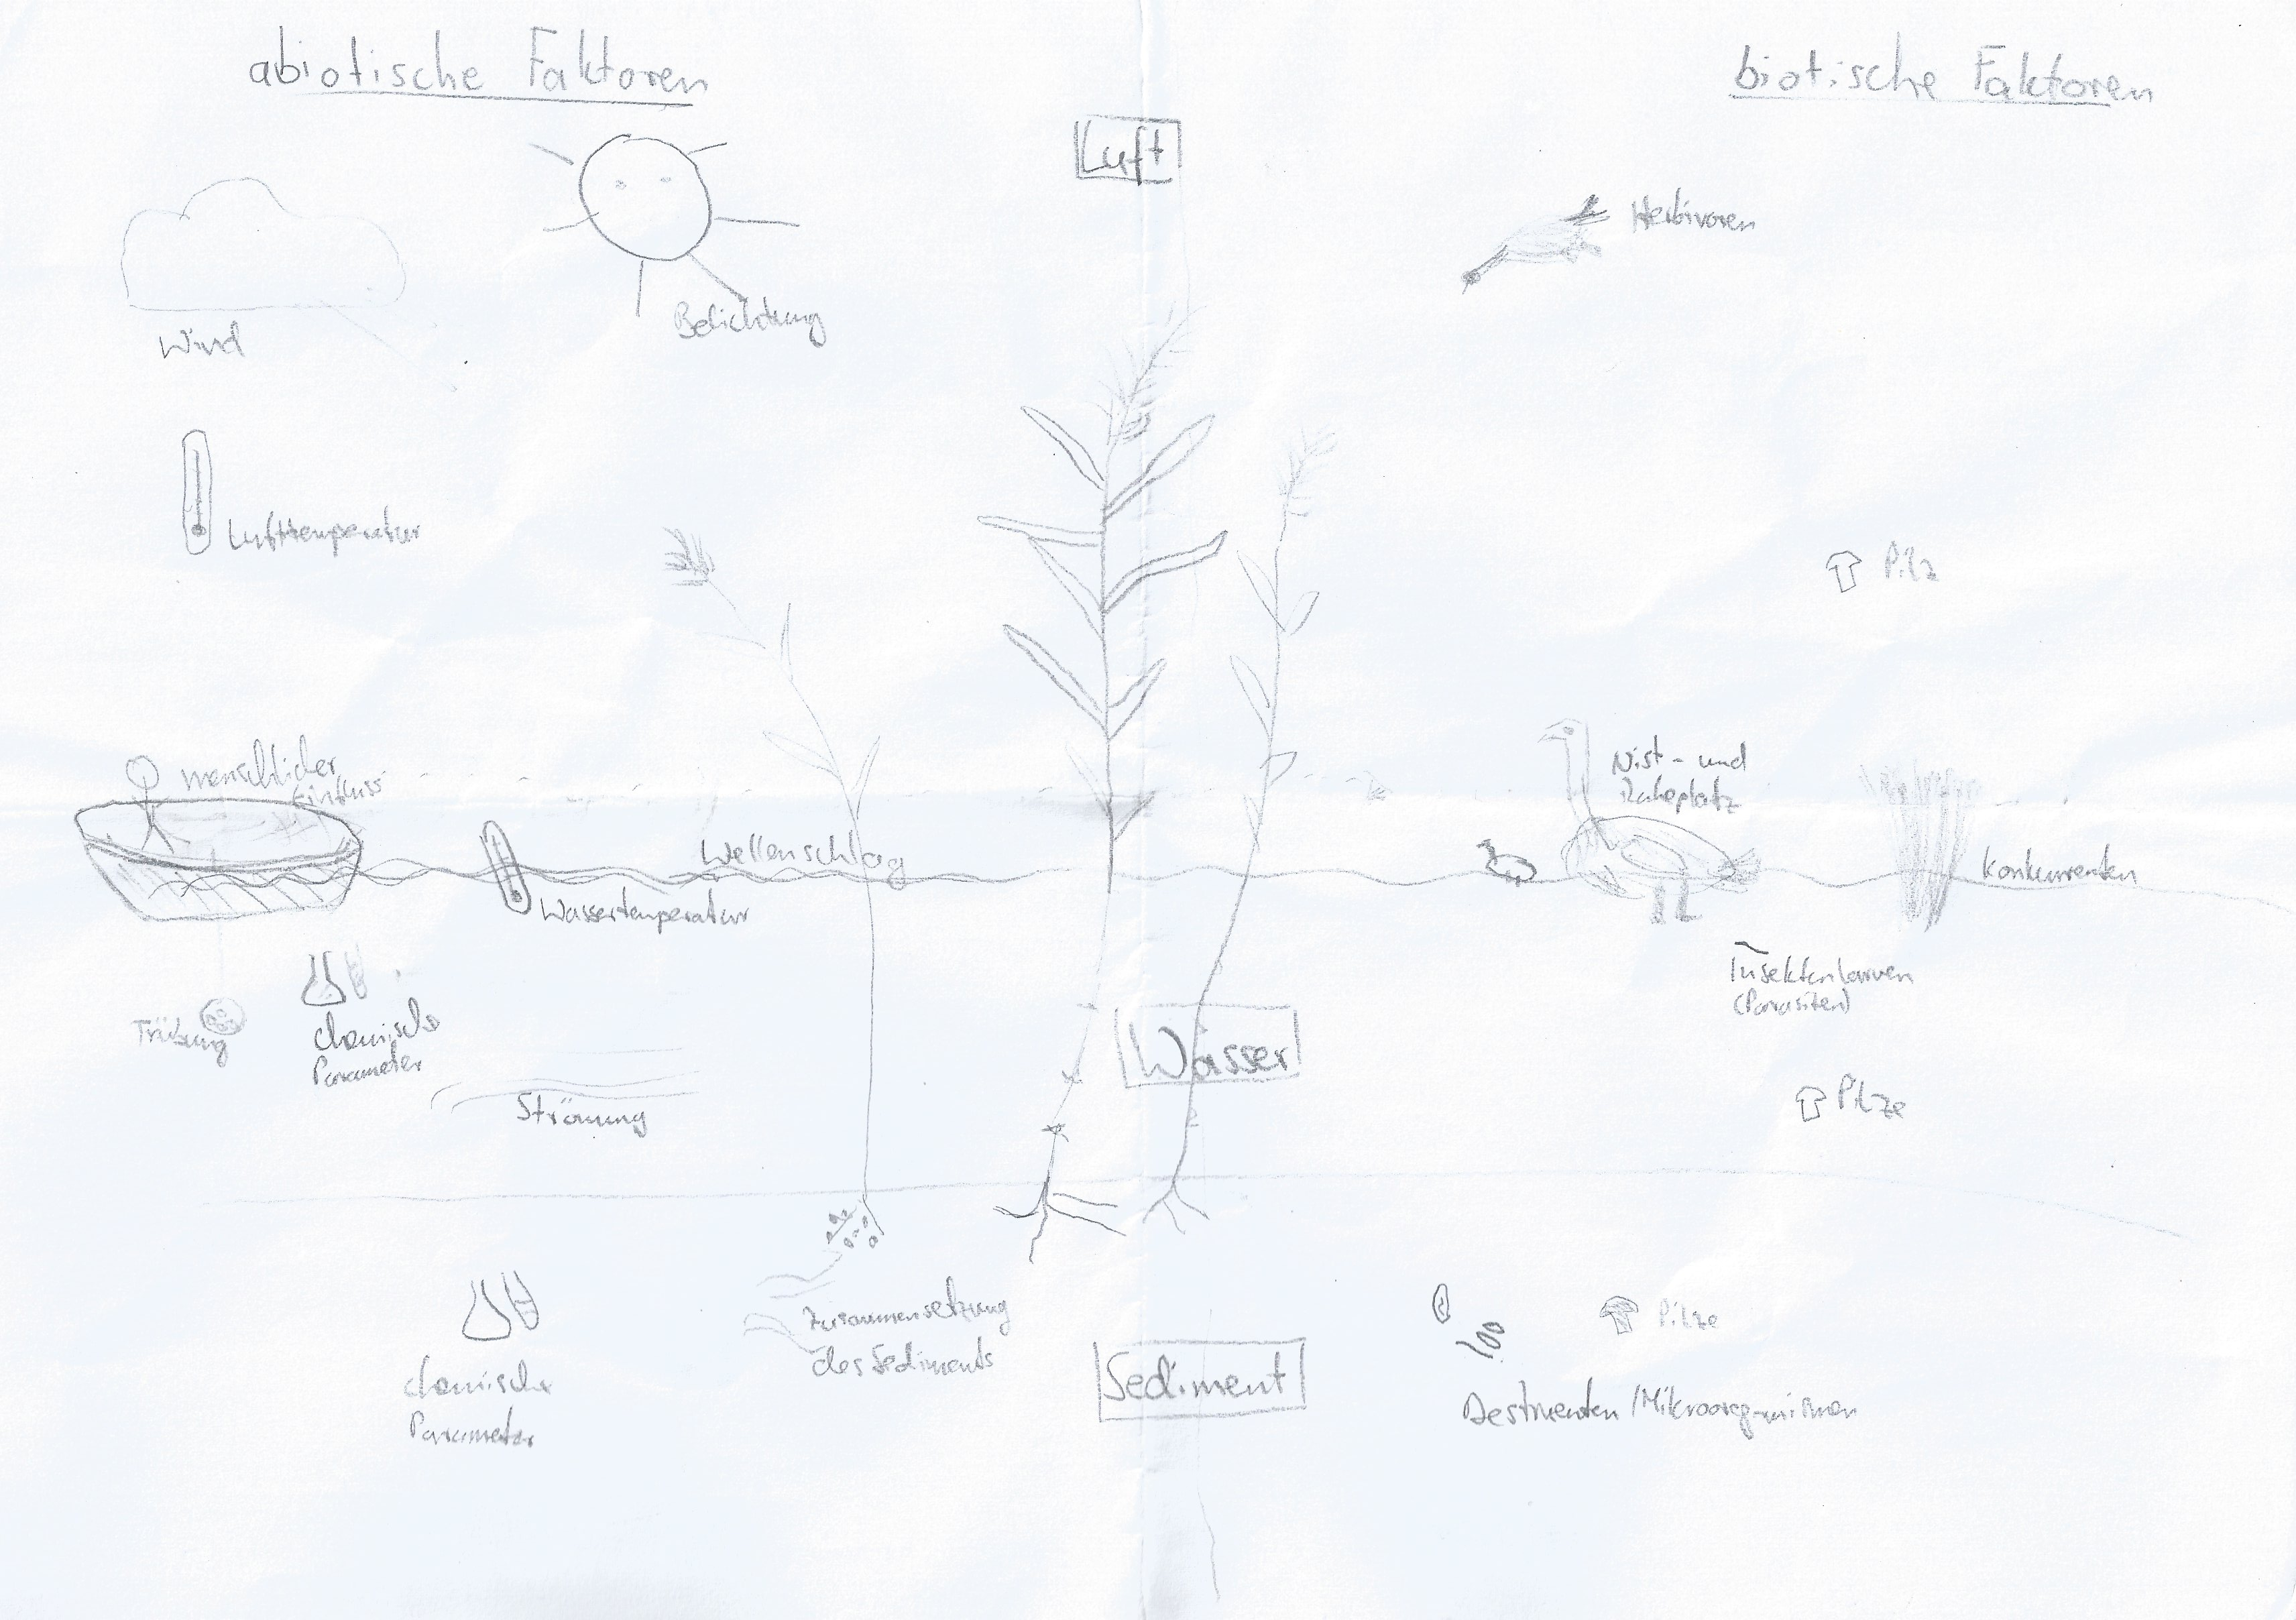 abiotische Faktoren
biotische Faktoren
Luft
Herbivoren
Wind
Belichtung
Lufttemperatur
Pilz
menschlicher
Einfluss
Nist- und
Ruheplatz
Wellenschlag
Konkurrenten
Wassertemperatur
Insektenlarven
(Parasiten)
Trübung
chemische
Parameter
Wasser
Strömung
Pilze
Zusammensetzung
des Sediments
Pilze
Sediment
chemische
Parameter
Destruenten / Mikroorganismen